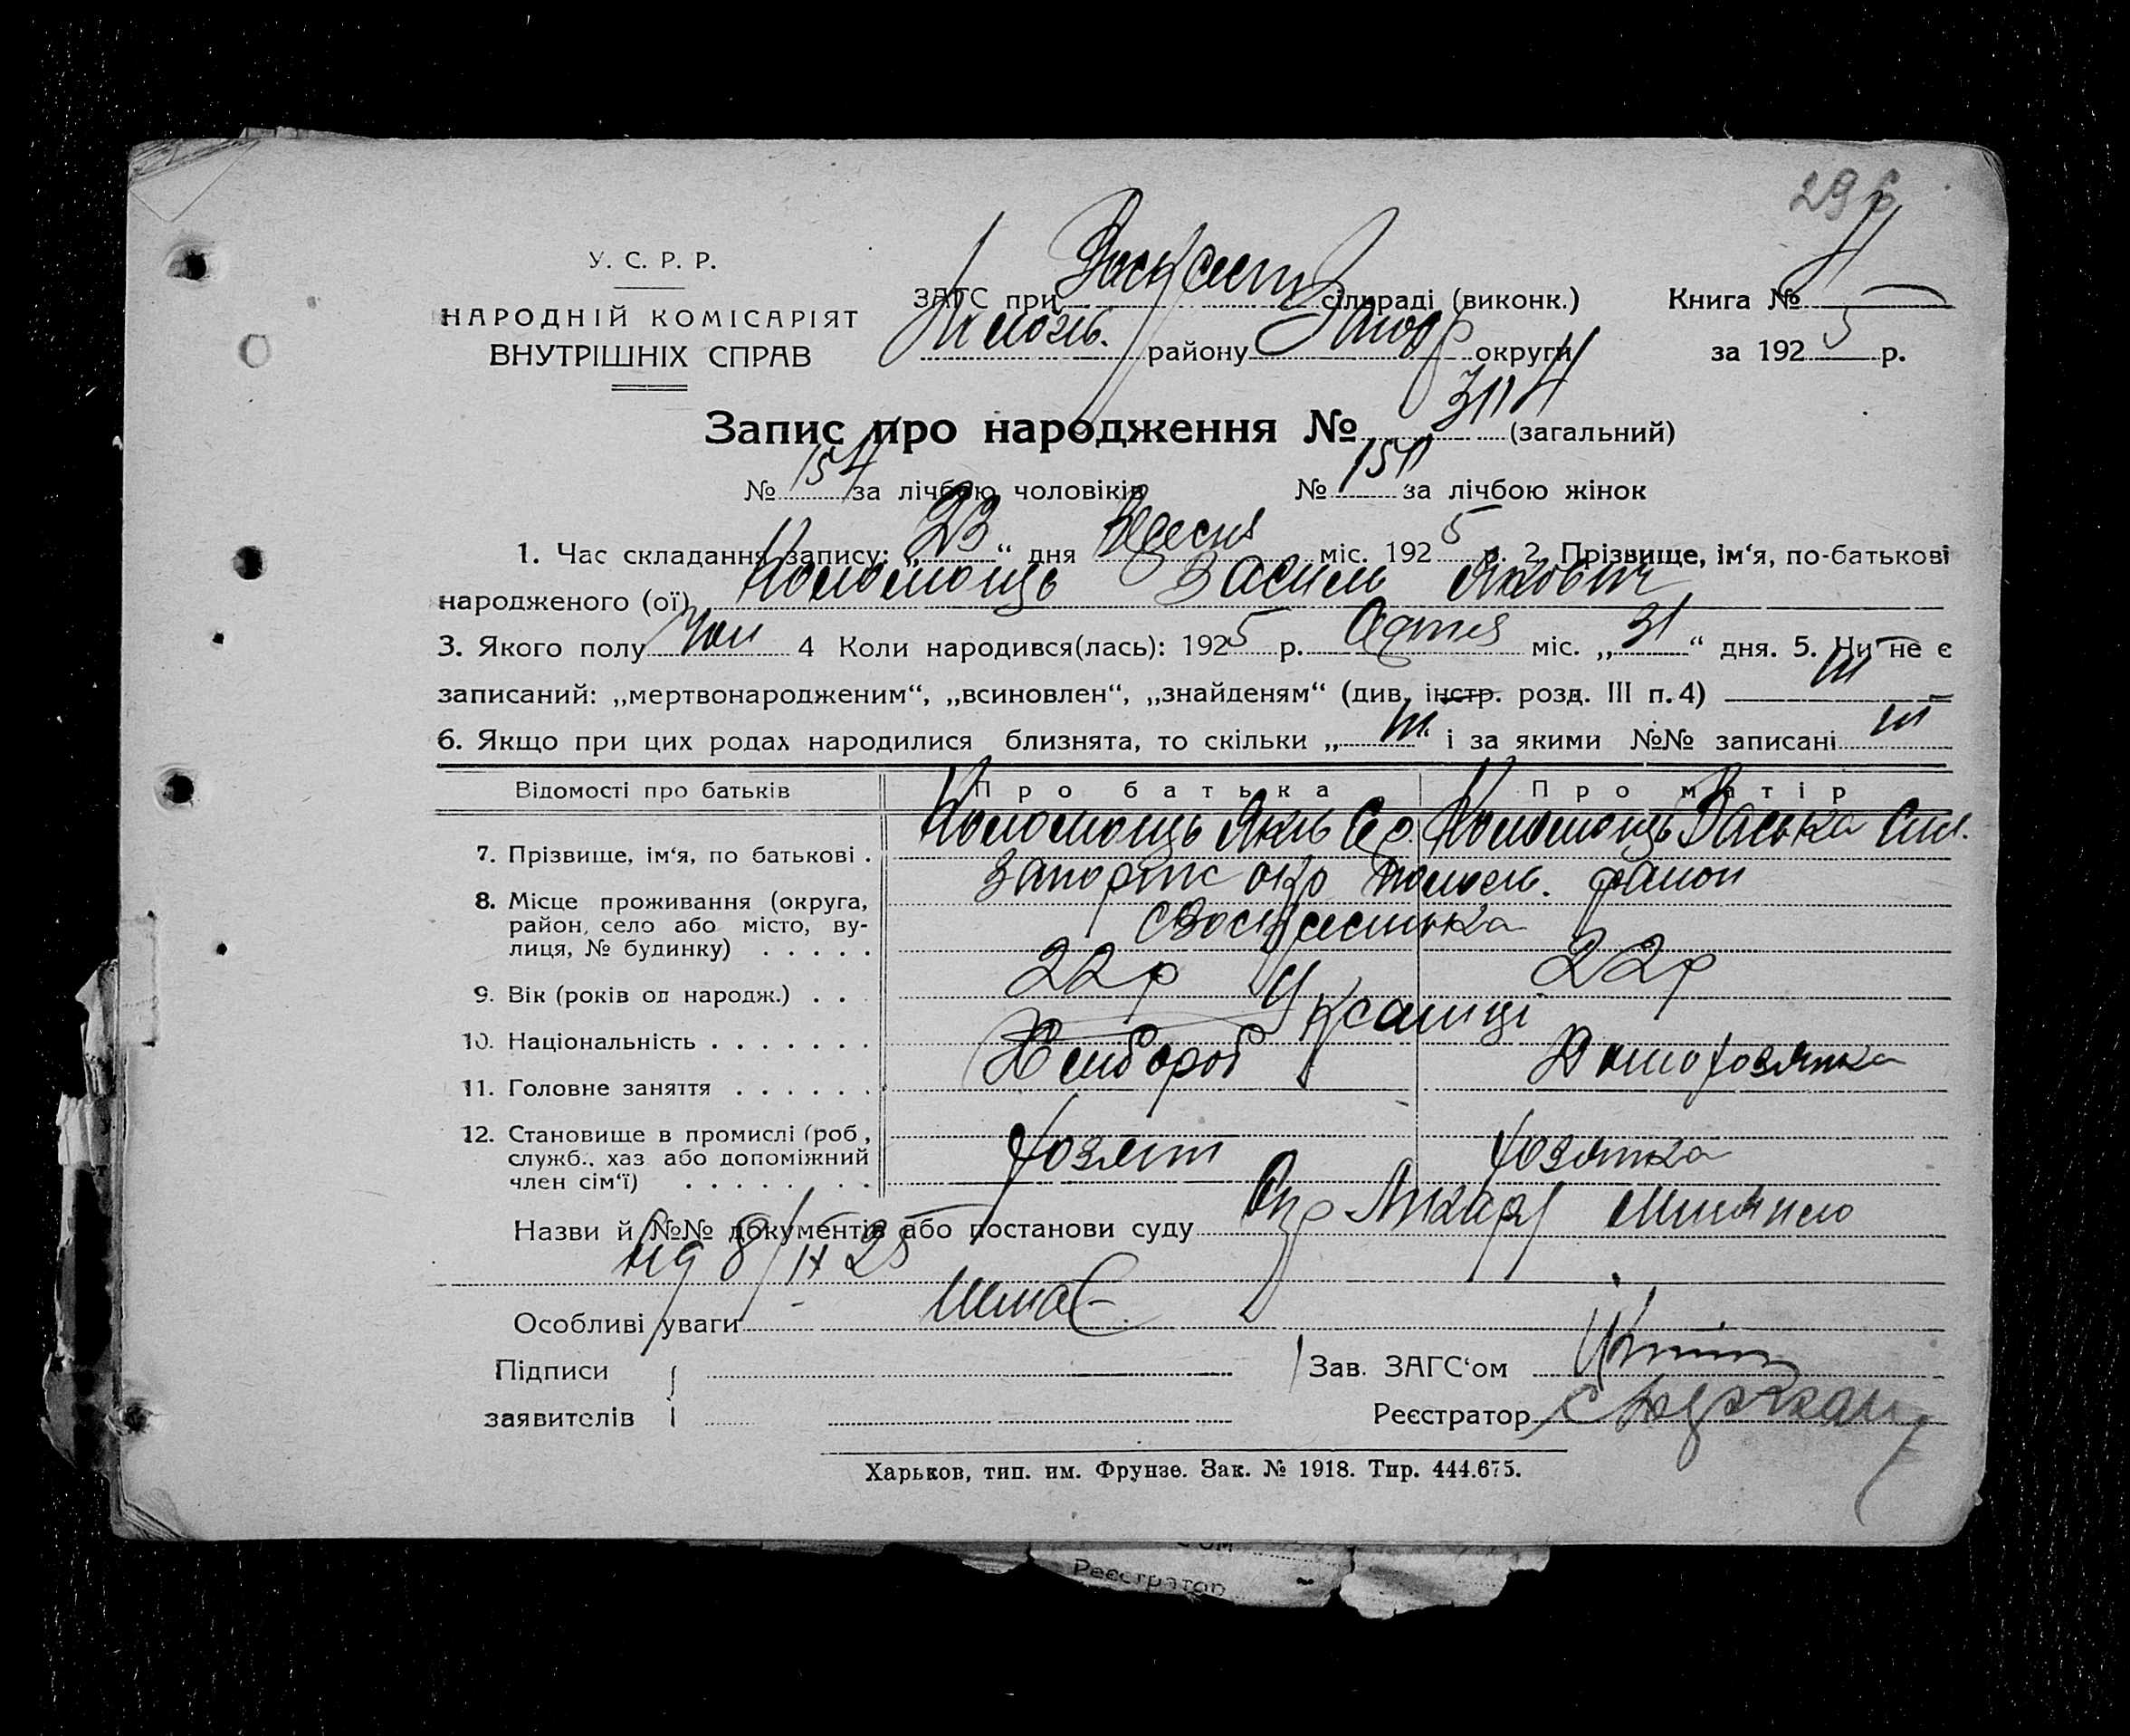 296
У. С. Р. Р.
НАРОДНІЙ КОМІСАРІЯТ
ВНУТРІШНІХ СПРАВ
ЗАГС при сільраді (виконк.)
району Запор округи
Книга №
за 1925 р.
Запис про народження № (загальний)
№ 154 за лічбою чоловіків № за лічбою жінок
1. Час складання запису: „23“ дня Вересня міс. 1925 р. 2. Прізвище, ім‘я, по-батькові
народженого (ої) Коломоєць Василь Якович
3. Якого полу Чол 4 Коли народився(лась): 1925 р. міс. „31“ дня. 5. Чи не є
записаний: „мертвонародженим“, „всиновлен“, „знайденям“ (див. інстр. розд. III п. 4)
6. Якщо при цих родах народилися близнята, то скільки „ “ і за якими №№ записані
Відомості про батьків Про батька Про матір
7. Прізвище, ім‘я, по батькові . Коломоєць Яків Коломоєць
8. Місце проживання (округа, район, село або місто, ву-
лиця, № будинку) . . . . . Запоріж окр район
с Воскресенька
9. Вік (років од народж.) . . 22 р 22 р
10. Національність . . . . . . . Українці
11. Головне заняття . . . . . . Хлібороб Домохозяйка
12. Становище в промислі (роб.,
служб., хаз або допоміжний
член сім‘ї) . . . . . . . . хозяїн хозяйка
Назви й №№ документів або постанови суду
від 8/IX 25
Особливі уваги Немає
Підписи
заявителів
Зав. ЗАГС‘ом
Реєстратор
Харьков, тип. им. Фрунзе. Зак. № 1918. Тир. 444.675.
Реєстратор